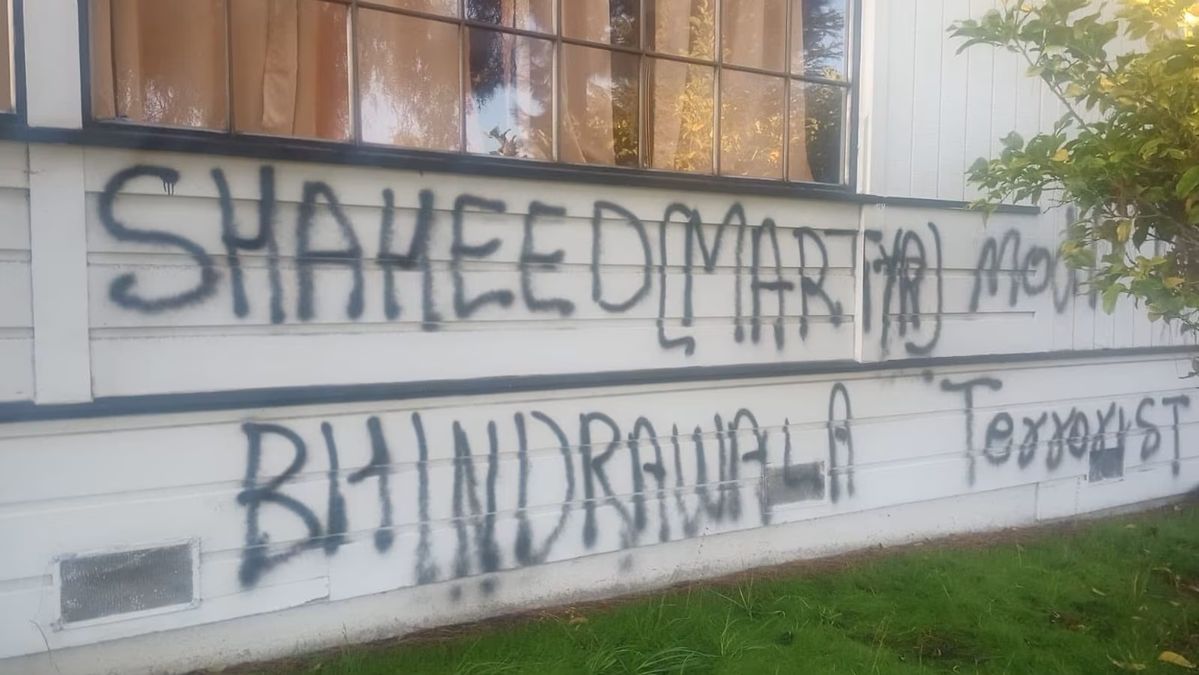 SHAHEED (MARTYR)
BHINDRAWALA Terrorist